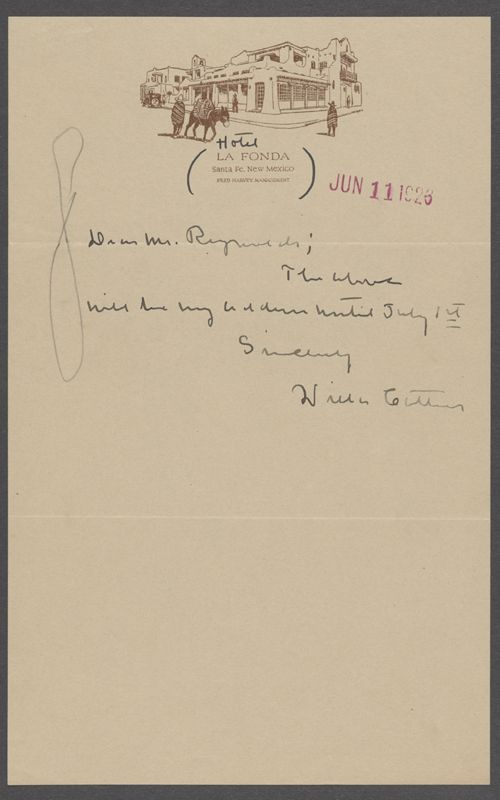 Hotel
LA FONDA
Santa Fe, New Mexico
FRED HARVEY MANAGEMENT
JUN 11 1926
Dear Mr. Reynolds;
The above
will be my address until July 1st
Sincerely
Willa Cather